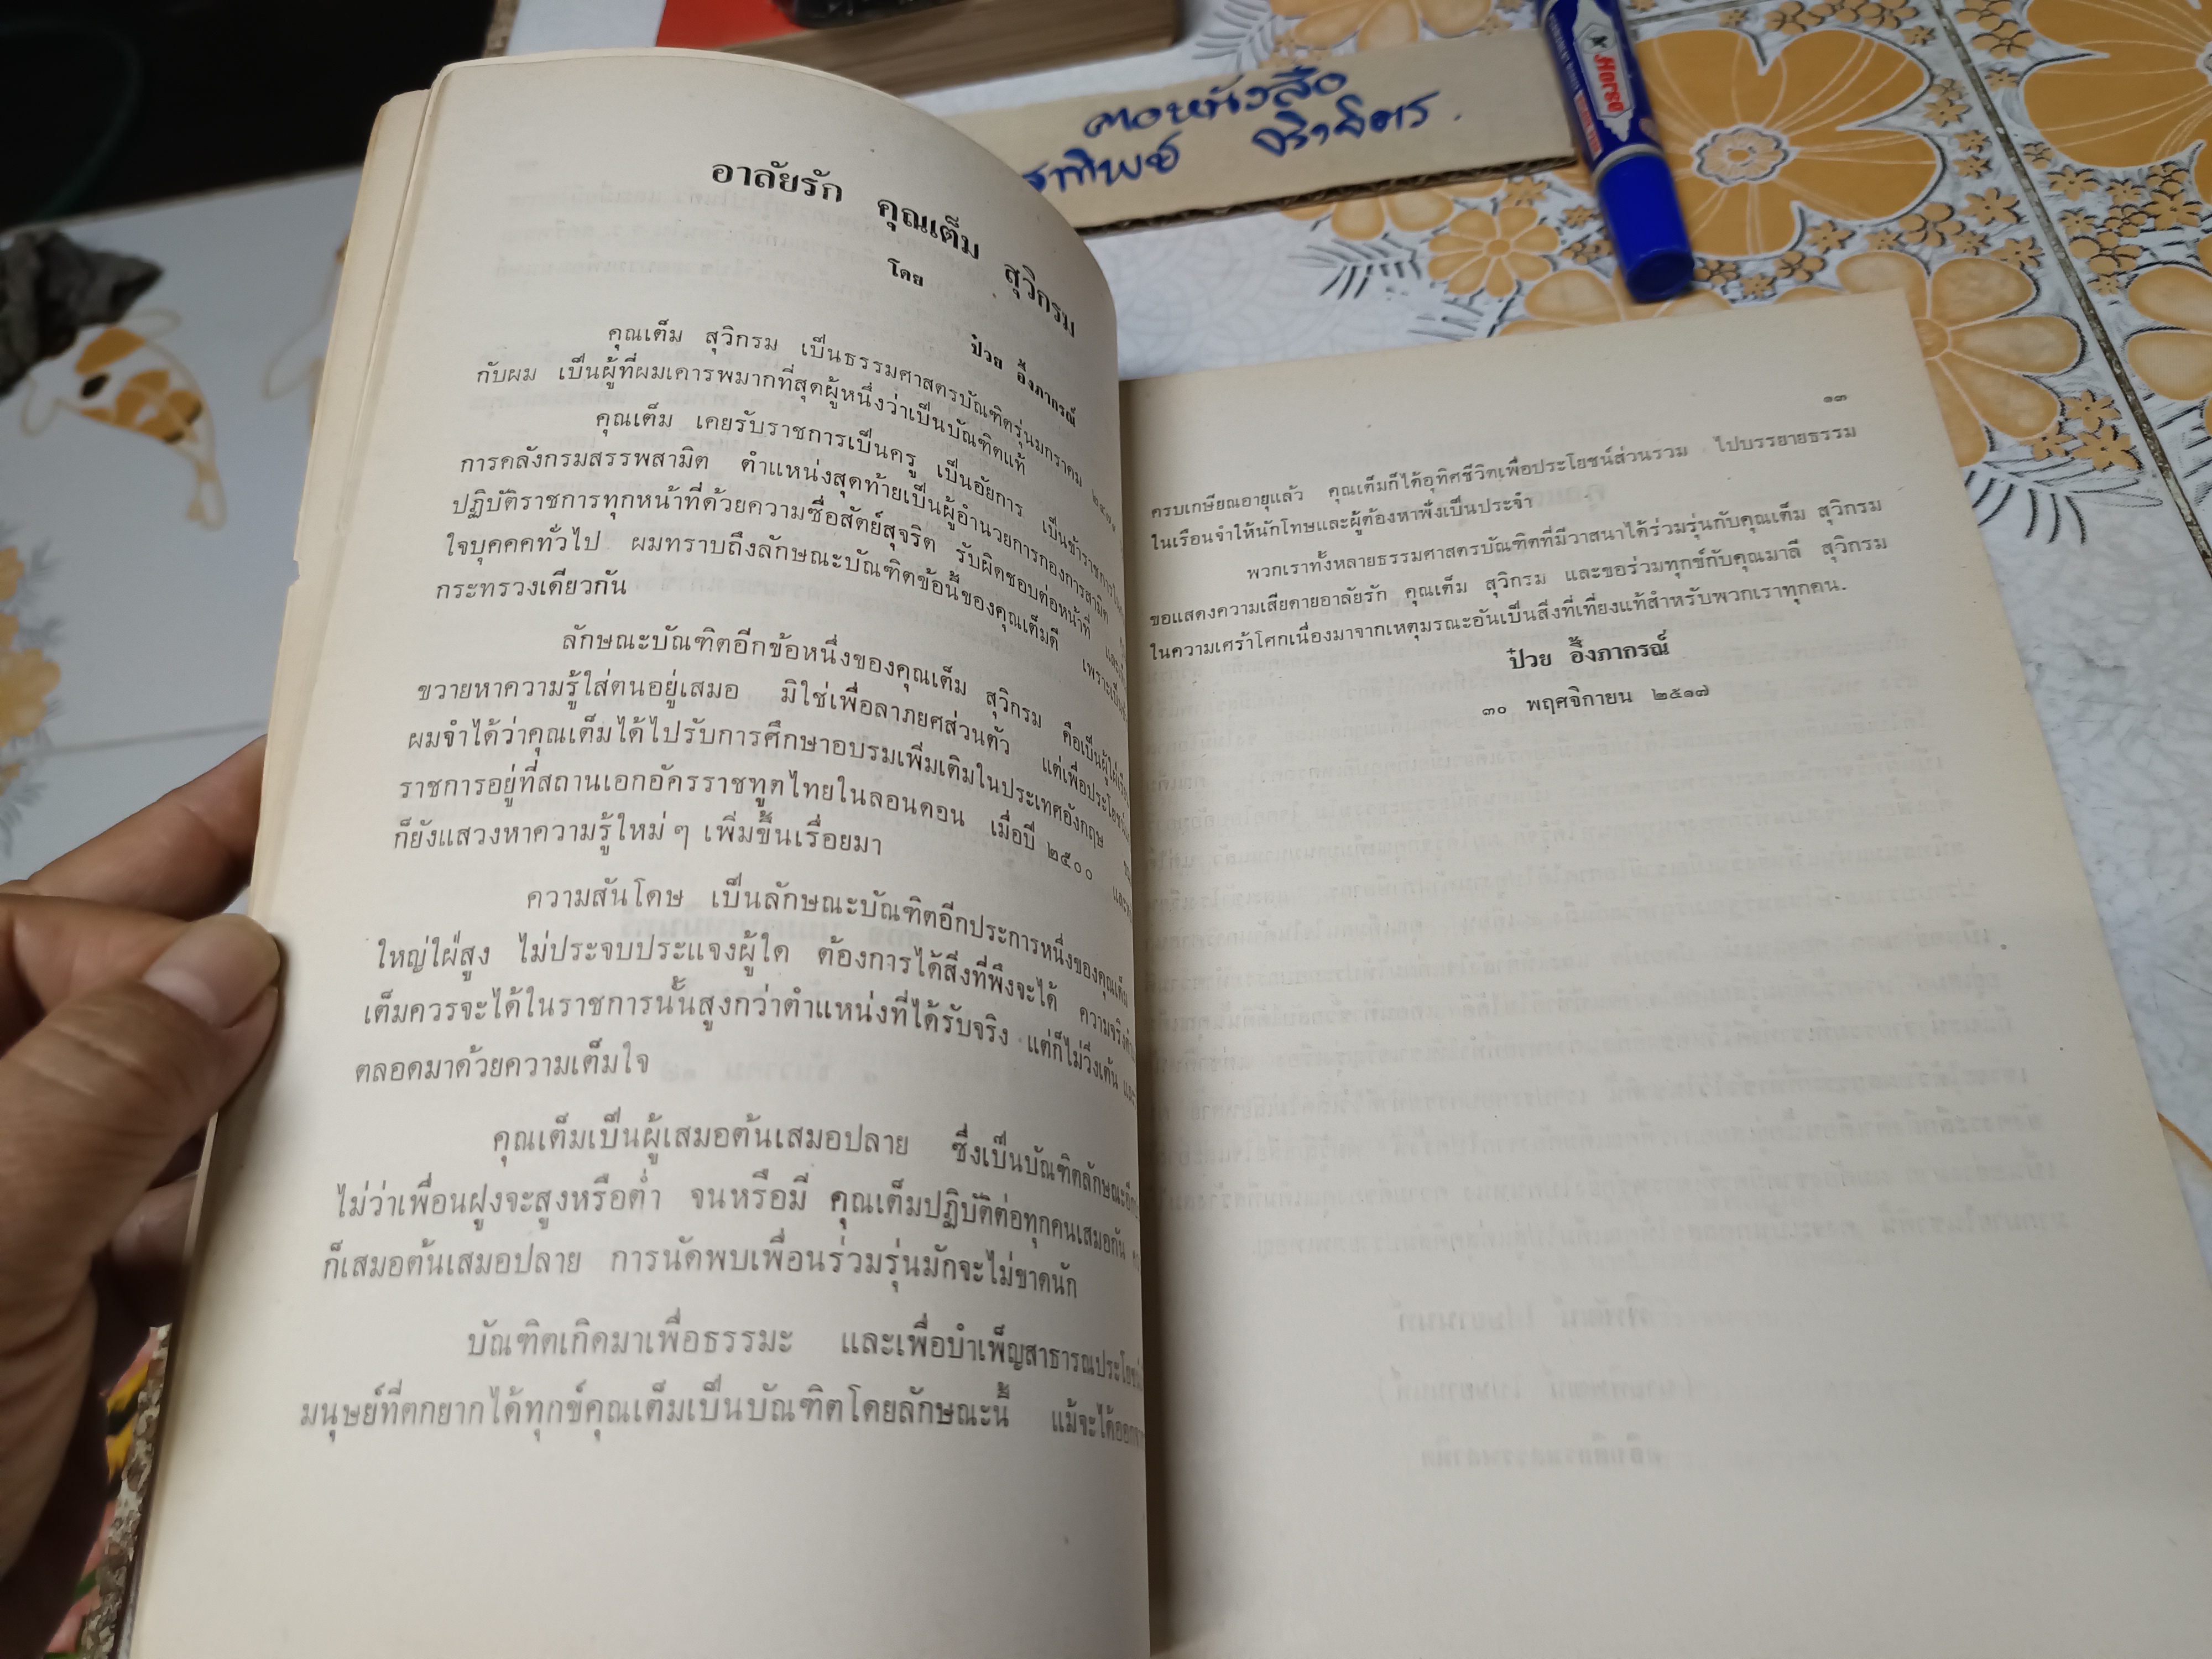 อาลัยรัก คุณเต็ม สุวิกรม
โดย
ป๋วย อึ๊งภากรณ์
คุณเต็ม สุวิกรม เป็นธรรมศาสตรบัณฑิตรุ่นมกราคม ๒๔๗๑
กับผม เป็นผู้ที่ผมเคารพมากที่สุดผู้หนึ่งว่าเป็นบัณฑิตแท้
คุณเต็ม เคยรับราชการเป็นครู เป็นอัยการ เป็นข้าราชการ
การคลังกรมสรรพสามิต ตำแหน่งสุดท้ายเป็นผู้อำนวยการกองการสามิต
ปฏิบัติราชการทุกหน้าที่ด้วยความซื่อสัตย์สุจริต รับผิดชอบต่อหน้าที่
ใจบุคคคทั่วไป ผมทราบถึงลักษณะบัณฑิตข้อนี้ของคุณเต็มดี เพราะเป็น
กระทรวงเดียวกัน
ลักษณะบัณฑิตอีกข้อหนึ่งของคุณเต็ม สุวิกรม คือเป็นผู้ใฝ่เรียน
ขวายหาความรู้ใส่ตนอยู่เสมอ มิใช่เพื่อลาภยศส่วนตัว แต่เพื่อประโยชน์
ผมจำได้ว่าคุณเต็มได้ไปรับการศึกษาอบรมเพิ่มเติมในประเทศอังกฤษ
ราชการอยู่ที่สถานเอกอัครราชทูตไทยในลอนดอน เมื่อปี ๒๕๐๐
ก็ยังแสวงหาความรู้ใหม่ ๆ เพิ่มขึ้นเรื่อยมา
ความสันโดษ เป็นลักษณะบัณฑิตอีกประการหนึ่งของคุณเต็ม
ใหญ่ใฝ่สูง ไม่ประจบประแจงผู้ใด ต้องการได้สิ่งที่พึงจะได้ ความจริง
เต็มควรจะได้ในราชการนั้นสูงกว่าตำแหน่งที่ได้รับจริง แต่ก็ไม่วิ่งเต้น
ตลอดมาด้วยความเต็มใจ
คุณเต็มเป็นผู้เสมอต้นเสมอปลาย ซึ่งเป็นบัณฑิตลักษณะ
ไม่ว่าเพื่อนฝูงจะสูงหรือต่ำ จนหรือมี คุณเต็มปฏิบัติต่อทุกคนเสมอกัน
ก็เสมอต้นเสมอปลาย การนัดพบเพื่อนร่วมรุ่นมักจะไม่ขาดนัก
บัณฑิตเกิดมาเพื่อธรรมะ และเพื่อบำเพ็ญสาธารณประโยชน์
มนุษย์ที่ตกยากได้ทุกข์คุณเต็มเป็นบัณฑิตโดยลักษณะนี้ แม้จะได้ออก
๑๓
ครบเกษียณอายุแล้ว คุณเต็มก็ได้อุทิศชีวิตเพื่อประโยชน์ส่วนรวม ไปบรรยายธรรม
ในเรือนจำให้นักโทษและผู้ต้องหาฟังเป็นประจำ
พวกเราทั้งหลายธรรมศาสตรบัณฑิตที่มีวาสนาได้ร่วมรุ่นกับคุณเต็ม สุวิกรม
ขอแสดงความเสียดายอาลัยรัก คุณเต็ม สุวิกรม และขอร่วมทุกข์กับคุณมาลี สุวิกรม
ในความเศร้าโศกเนื่องมาจากเหตุมรณะอันเป็นสิ่งที่เที่ยงแท้สำหรับพวกเราทุกคน.
ป๋วย อึ๊งภากรณ์
๓๐ พฤศจิกายน ๒๕๑๗
คอหนังสือ
Horse